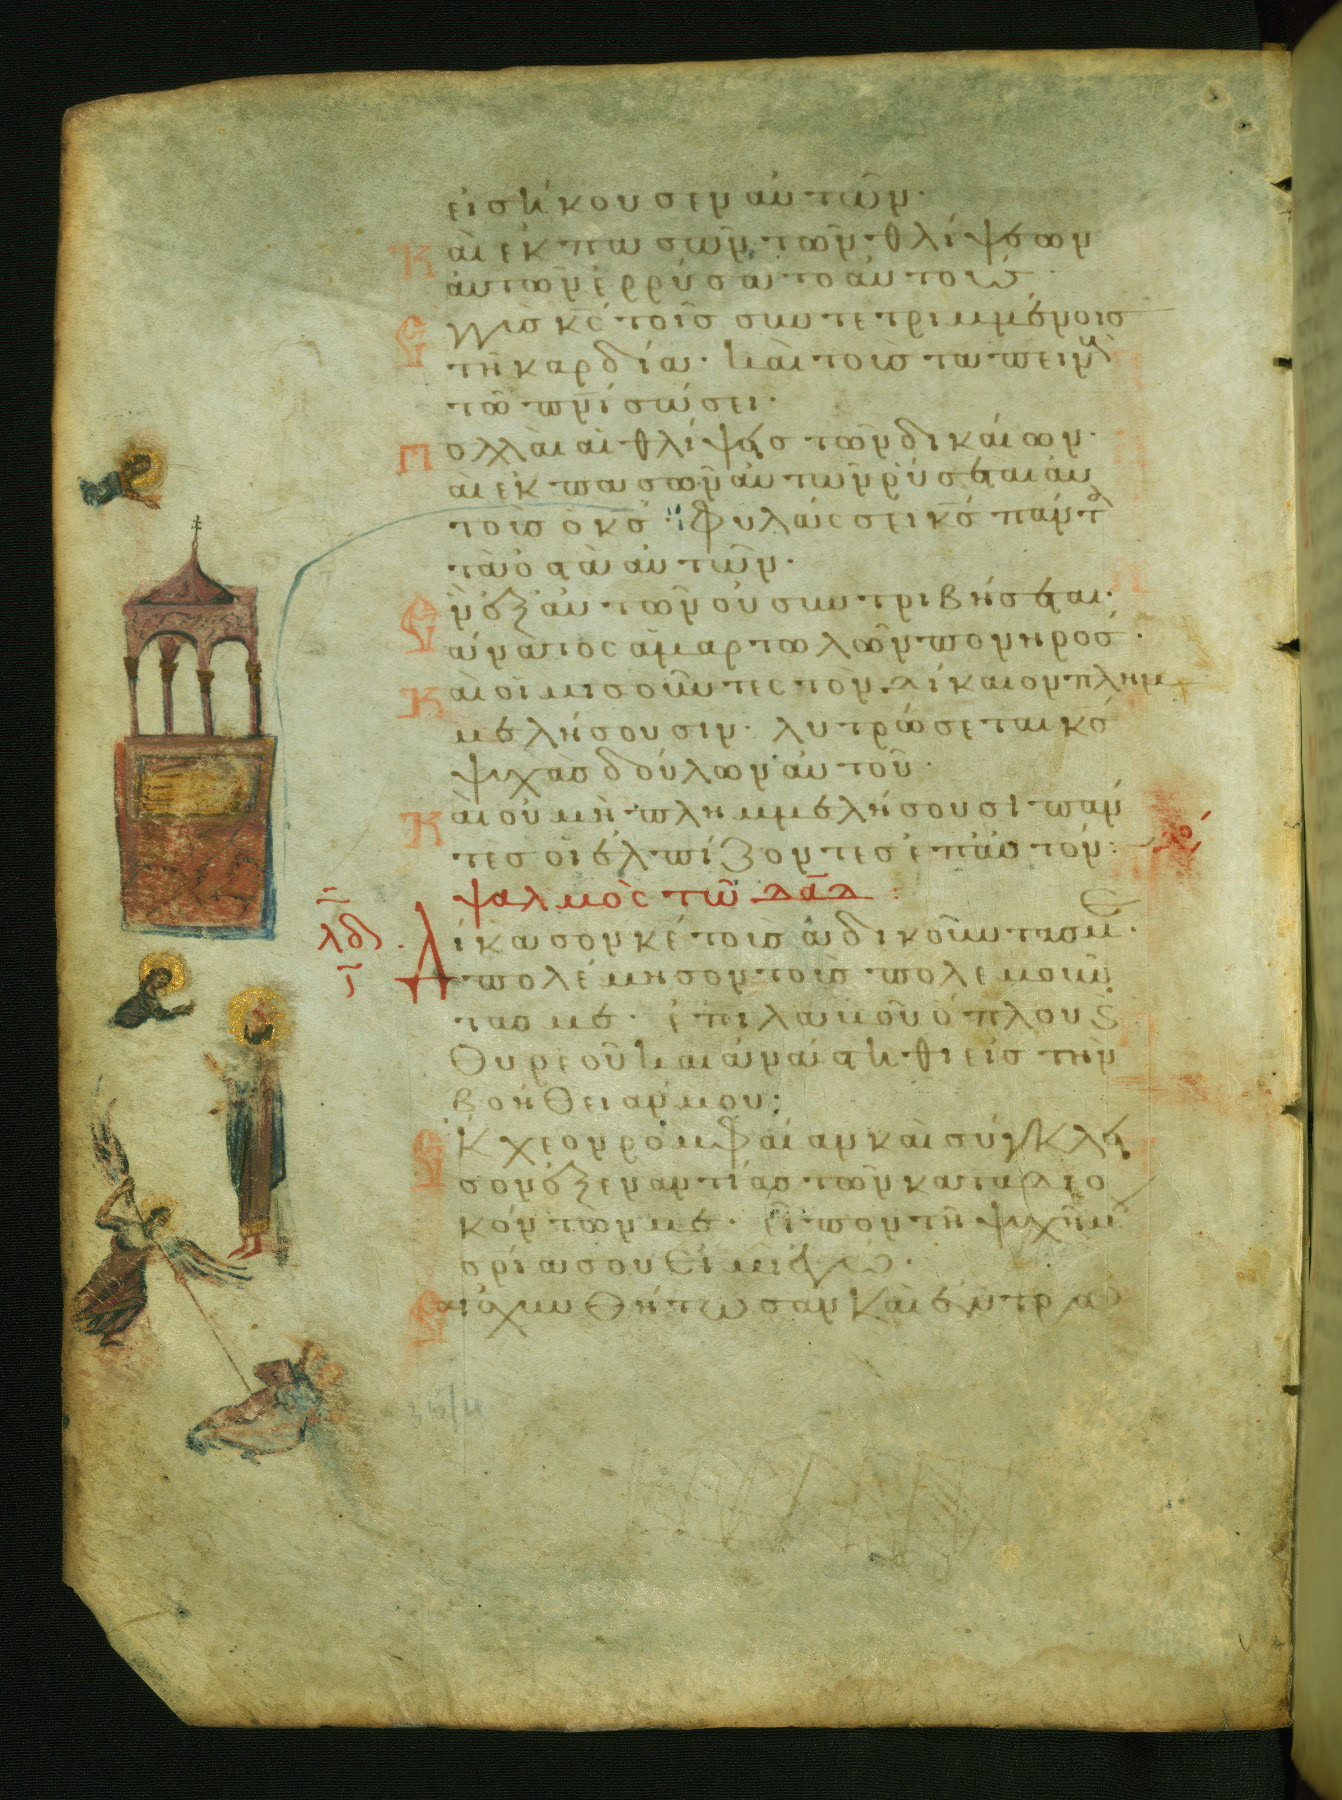 εἰσήκουσεν αὐτῶν·
Καὶ ἐκ πασῶν τῶν θλίψεων
αὐτῶν ἐρρύσατο αὐτούς·
Ἐγγὺς κ̅ς̅ τοῖς συντετριμμένοις
τὴν καρδίαν· καὶ τοὺς ταπεινοὺς
τῶ π̅ν̅ι̅ σώσει·
Πολλαὶ αἱ θλίψεις τῶν δικαίων·
καὶ ἐκ πασῶν αὐτῶν ῥύσεται αὐ
τοὺς ὁ κ̅ς̅ Φυλάσσει κ̅ς̅ πάντα
τὰ ὀστᾶ αὐτῶν·
Ἓν ἐξ αὐτῶν οὐ συντριβήσεται·
θάνατος ἁμαρτωλῶν πονηρός·
Καὶ οἱ μισοῦντες τὸν δίκαιον πλημ
μελήσουσιν· λυτρώσεται κ̅ς̅
ψυχὰς δούλων αὐτοῦ·
Καὶ οὐ μὴ πλημμελήσουσι πάν
τες οἱ ἐλπίζοντες ἐπ' αὐτόν:
ψαλμὸς τῶ δ̅α̅δ̅:
λδ Δίκασον κ̅ε̅ τοὺς ἀδικοῦντάς με·
πολέμησον τοὺς πολεμοῦν
τάς με· ἐπιλαβοῦ ὅπλου καὶ
θυρεοῦ καὶ ἀνάστηθι εἰς τὴν
βοήθειάν μου:
Ἔκχεον ρομφαίαν καὶ σύγκλει
σον ἐξ ἐναντίας τῶν καταδιω
κόντων με· εἶπον τῆ ψυχῆ μου
σ̅ρ̅ία σου εἰμὶ ἐγώ·
Αἰσχυνθήτωσαν καὶ ἐντρα